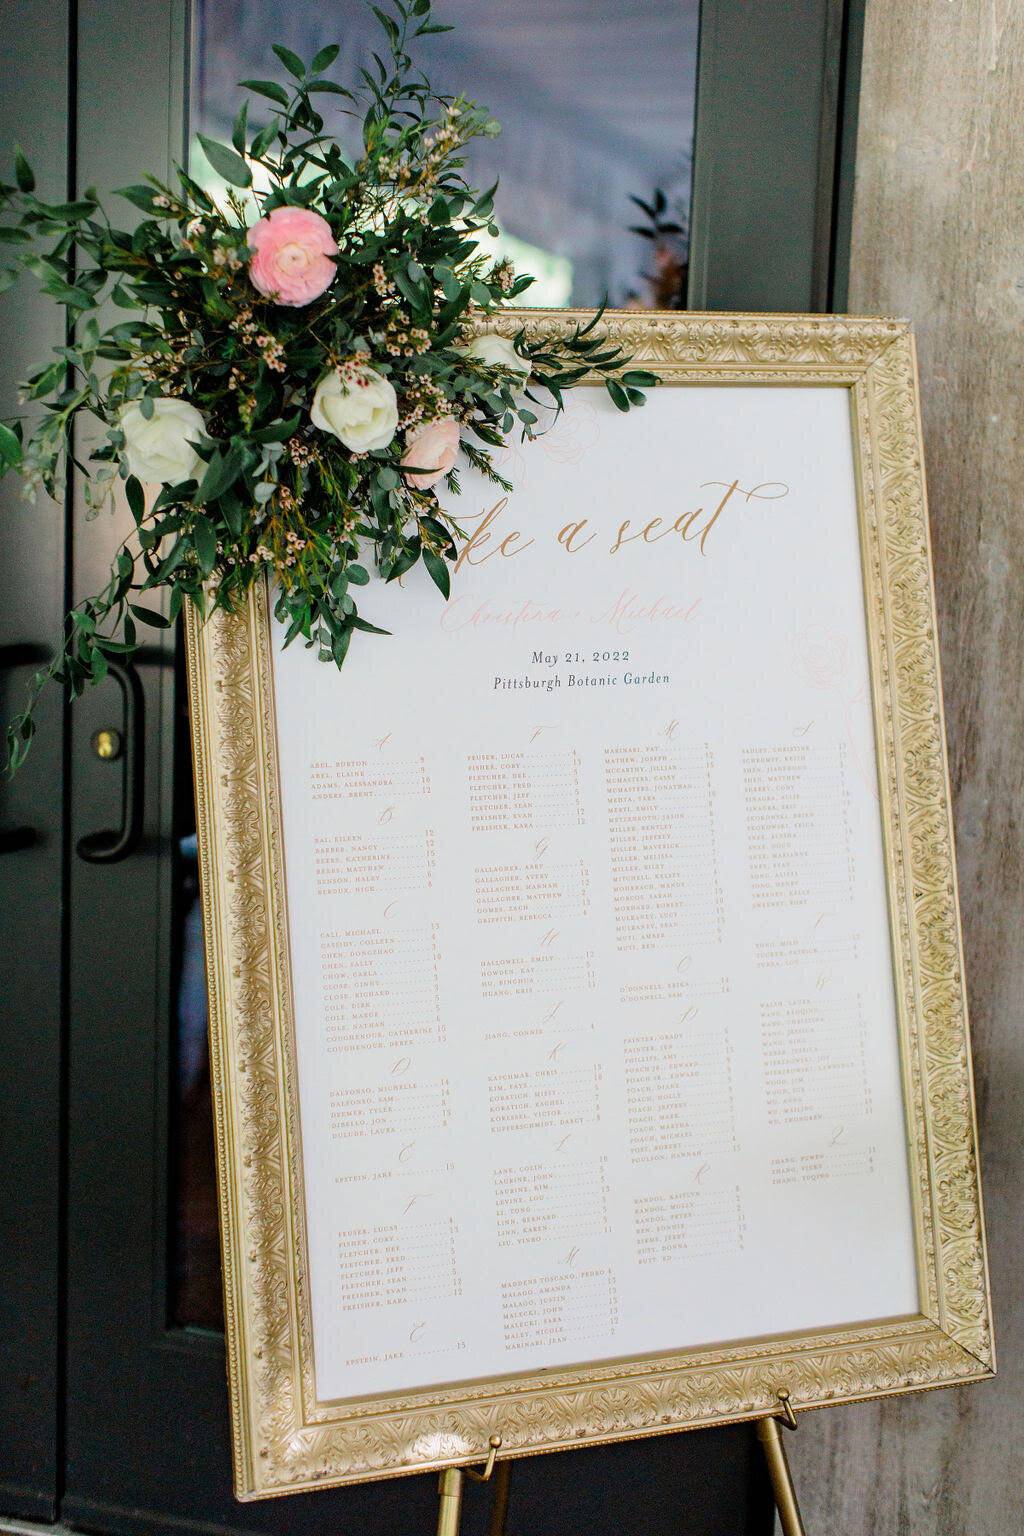 ke a seat
Christina + Michael
May 21, 2022
Pittsburgh Botanic Garden
A
ABEL, BURTON 9
ABEL, ELAINE 9
ADAMS, ALESSANDRA 10
ANDERS, BRENT 12
B
BAI, EILEEN 12
BARBER, NANCY 12
BEERS, KATHERINE 15
BEERS, MATTHEW 15
BENSON, HALEY 6
BERDUX, NICK 8
C
CALI, MICHAEL 13
CASSIDY, COLLEEN 4
CHEN, DONGZHAO 3
CHEN, SALLY 10
CHOW, CARLA 4
CLOSE, GINNY 3
CLOSE, RICHARD 3
COLE, DIRK 5
COLE, MARGE 5
COLE, NATHAN 6
COUGHENOUR, CATHERINE 15
COUGHENOUR, DEREK 15
D
DALFONSO, MICHELLE 14
DALFONSO, SAM 14
DEEMER, TYLER 8
DIBELLO, JON 13
DULUDE, LAURA 8
E
EPSTEIN, JAKE 15
F
FEUSER, LUCAS 4
FISHER, CORY 13
FLETCHER, DEE 5
FLETCHER, FRED 5
FLETCHER, JEFF 5
FLETCHER, SEAN 5
FREISHER, EVAN 12
FREISHER, KARA 12
E
EPSTEIN, JAKE 15
F
FEUSER, LUCAS 4
FISHER, CORY 13
FLETCHER, DEE 5
FLETCHER, FRED 5
FLETCHER, JEFF 5
FLETCHER, SEAN 5
FREISHER, EVAN 12
FREISHER, KARA 12
G
GALLAGHER, ABBY 2
GALLAGHER, AVERY 12
GALLAGHER, HANNAH 12
GALLAGHER, MATTHEW 2
GOMES, ZACH 12
GRIFFITH, REBECCA 4
H
HALLOWELL, EMILY 12
HOWDEN, KAY 5
HU, BINGHUA 11
HUANG, KRIS 11
J
JIANG, CONNIE 4
K
KATCHMAR, CHRIS 13
KIM, FAYE 10
KORATICH, MISSY 7
KORATICH, RACHEL 7
KORESSEL, VICTOR 8
KUPPERSCHMIDT, DARCY 8
L
LANE, COLIN 10
LAURINE, JOHN 5
LAURINE, KIM 5
LEVINE, LOU 13
LI, TONG 3
LINN, BERNARD 5
LINN, KAREN 5
LIU, YINBO 11
M
MADDENS TOSCANO, PEDRO 4
MALAGO, AMANDA 13
MALAGO, JUSTIN 13
MALECKI, JOHN 13
MALECKI, SARA 13
MALEY, NICOLE 12
MARINARI, JEAN 2
M
MARINARI, PAT 2
MATHEW, JOSEPH 12
MCCARTHY, JILLIAN 15
MCMASTERS, CASEY 4
MCMASTERS, JONATHAN 4
MEHTA, SARA 10
MERTI, EMILY 8
METZENROTH, JASON 8
MILLER, BENTLEY 7
MILLER, JEFFREY 7
MILLER, MAVERICK 7
MILLER, MELISSA 7
MILLER, RILEY 7
MITCHELL, KELSEY 4
MOHRBACH, MANDY
MORCOS, SARAH
MORHARD, ROBERT 10
MULRANEY, LUCY 13
MULRANEY, SEAN 13
MUTI, AMBER 6
MUTI, BEN 6
O
O'DONNELL, ERIKA 14
O'DONNELL, SAM 14
P
PAINTER, GRADY 6
PAINTER, JEN 6
PHILLIPS, AMY 15
POACH JR., EDWARD
POACH SR., EDWARD
POACH, DIANE
POACH, HOLLY
POACH, JEFFREY
POACH, MARK
POACH, MARTHA
POACH, MICHAEL
POST, ROBERT 4
POULSON, HANNAH 15
R
RANDOL, KAITLYN 8
RANDOL, MOLLY 2
RANDOL, PETER 2
REN, BONNIE 11
RUTT, DONNA
RUTT, ED
S
SADLEY, CHRISTINE 13
SCHRUMPF, KEITH 12
SHEN, JIANZHONG
SHEN, MATTHEW
SHERRY, CODY
SKOKOWSKI, BRIEN
SKOKOWSKI, ERICA
SNEE, ALYSHA
SNEE, DOUG
SNEE, MARIANNE
SNEE, RYAN
SONG, ALICIA
SONG, HENRY
SWEENEY, KELLY
SWEENEY, TONY
T
TONG, MILO 12
TUCKER, PATRICK
TURZA, LOU
W
WALSH, LAURA
WANG, BAOQING
WANG, CHRISTINA
WANG, JESSICA
WANG, NING
WEBER, JESSICA
WIERZBOWSKI, JOY
WIERZBOWSKI, LAWRENCE
WOOD, JIM
WOOD, SUE
WU, ANNA
WU, MAILING
WU, ZHONGREN 11
Z
ZHANG, FUWEN 11
ZHANG, VICKY 4
ZHANG, YUQING 3